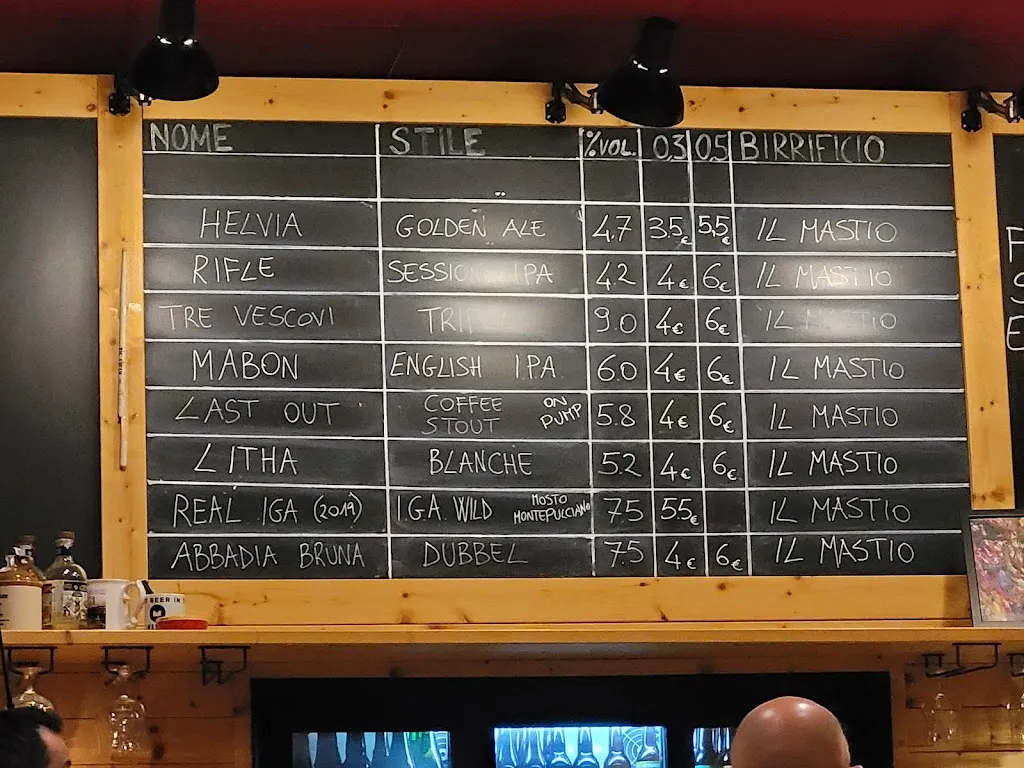 NOME STILE %VOL. 0,3 0,5 BIRRIFICIO
HELVIA GOLDEN ALE 4.7 3.5€ 5,5€ IL MASTIO
RIFLE SESSION IPA 4.2 4€ 6€ IL MASTIO
TRE VESCOVI 9.0 4€ 6€ IL MASTIO
MABON ENGLISH IPA 6.0 4€ 6€ IL MASTIO
LAST OUT COFFEE STOUT ON PUMP 5.8 4€ 6€ IL MASTIO
LITHA BLANCHE 5.2 4€ 6€ IL MASTIO
REAL IGA (2019) I.G.A. WILD MOSTO MONTEPULCIANO 7.5 5.5€ IL MASTIO
ABBADIA BRUNA DUBBEL 7.5 4€ 6€ IL MASTIO
BEER IN